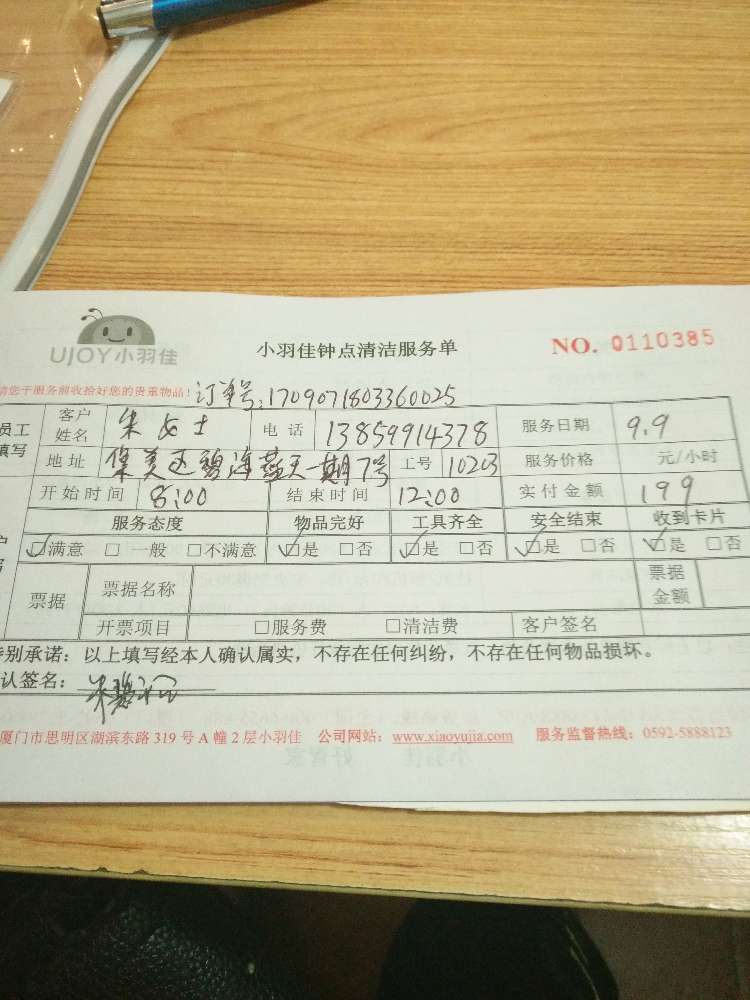 UJOY小羽佳
小羽佳钟点清洁服务单
NO. 0110385
请您于服务前收拾好您的贵重物品!
订单号:1709071803360025
员工填写 客户姓名 朱女士 电话 13859914378 服务日期 9.9
地址 集美区碧海蓝天一期7号 工号 10203 服务价格 元/小时
开始时间 8:00 结束时间 12:00 实付金额 199
服务态度 物品完好 工具齐全 安全结束 收到卡片
☑满意 □一般 □不满意 ☑是 □否 ☑是 □否 ☑是 □否 ☑是 □否
票据 票据名称 票据金额
开票项目 □服务费 □清洁费 客户签名
特别承诺:以上填写经本人确认属实,不存在任何纠纷,不存在任何物品损坏。
认签名:
厦门市思明区湖滨东路 319 号 A 幢 2 层小羽佳 公司网站:www.xiaoyujia.com 服务监督热线:0592-5888123